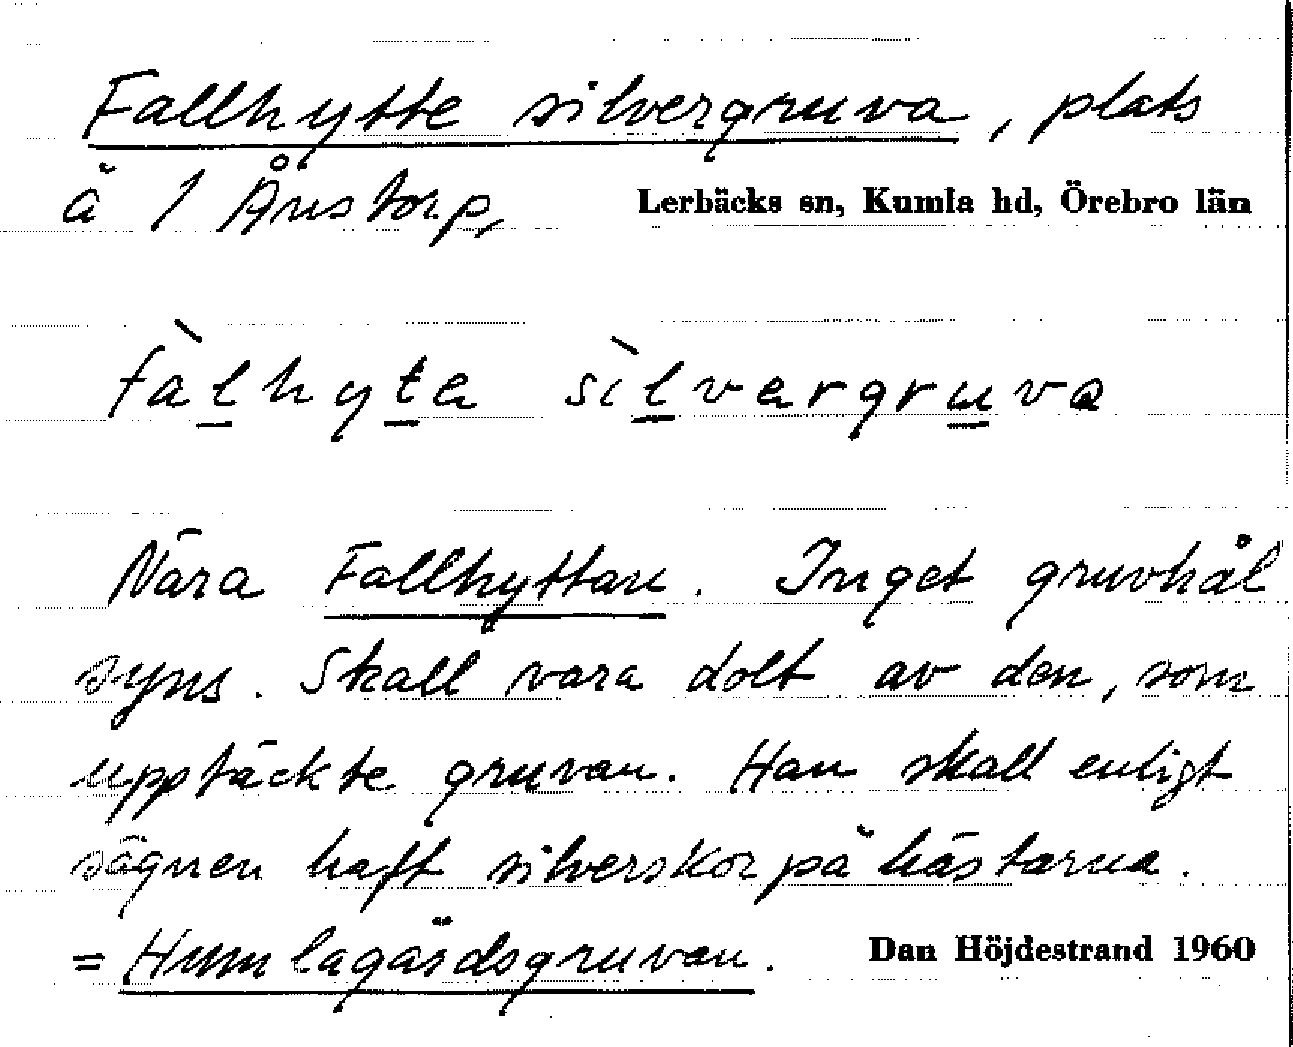 Fallhytte silvergruva, plats
å 1 Ånstorp, Lerbäcks sn, Kumla hd, Örebro län
fàlhyte sìlvergruva
Nära Fallhyttan. Inget gruvhål
syns. Skall vara dolt av den, som
upptäckte gruvan. Han skall enligt
sägnen haft silverskor på hästarna.
= Humlagärdsgruvan. Dan Höjdestrand 1960